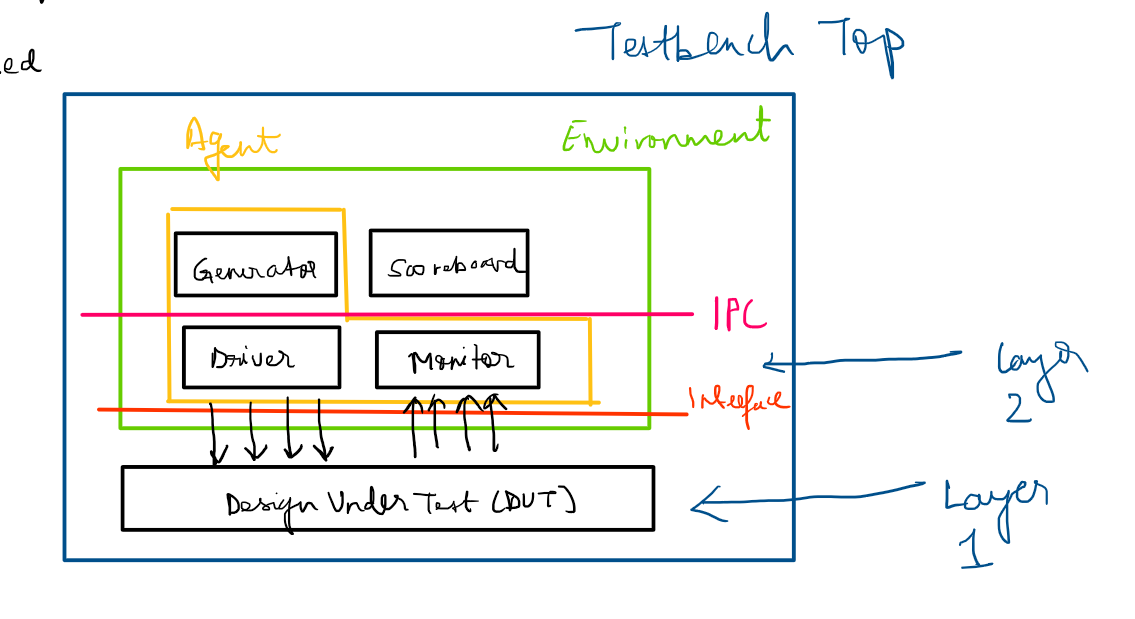 Testbench Top
Agent
Environment
Generator
Scoreboard
IPC
Driver
Monitor
Layer
2
Interface
Design Under Test (DUT)
Layer
1